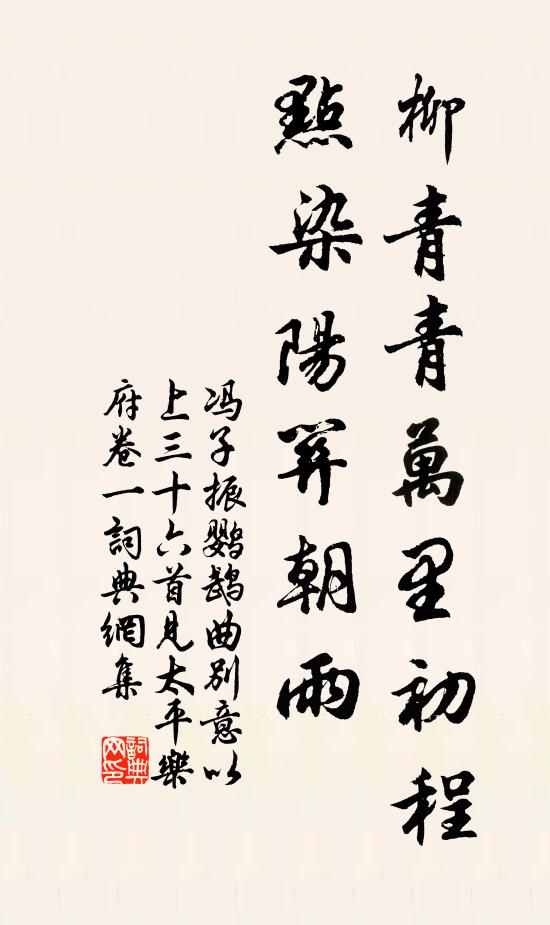 柳青青萬里初程
點染陽關朝雨
冯子振鹦鹉曲别意以
上三十六首見太平樂
府卷一詞典網集
詞典
网印